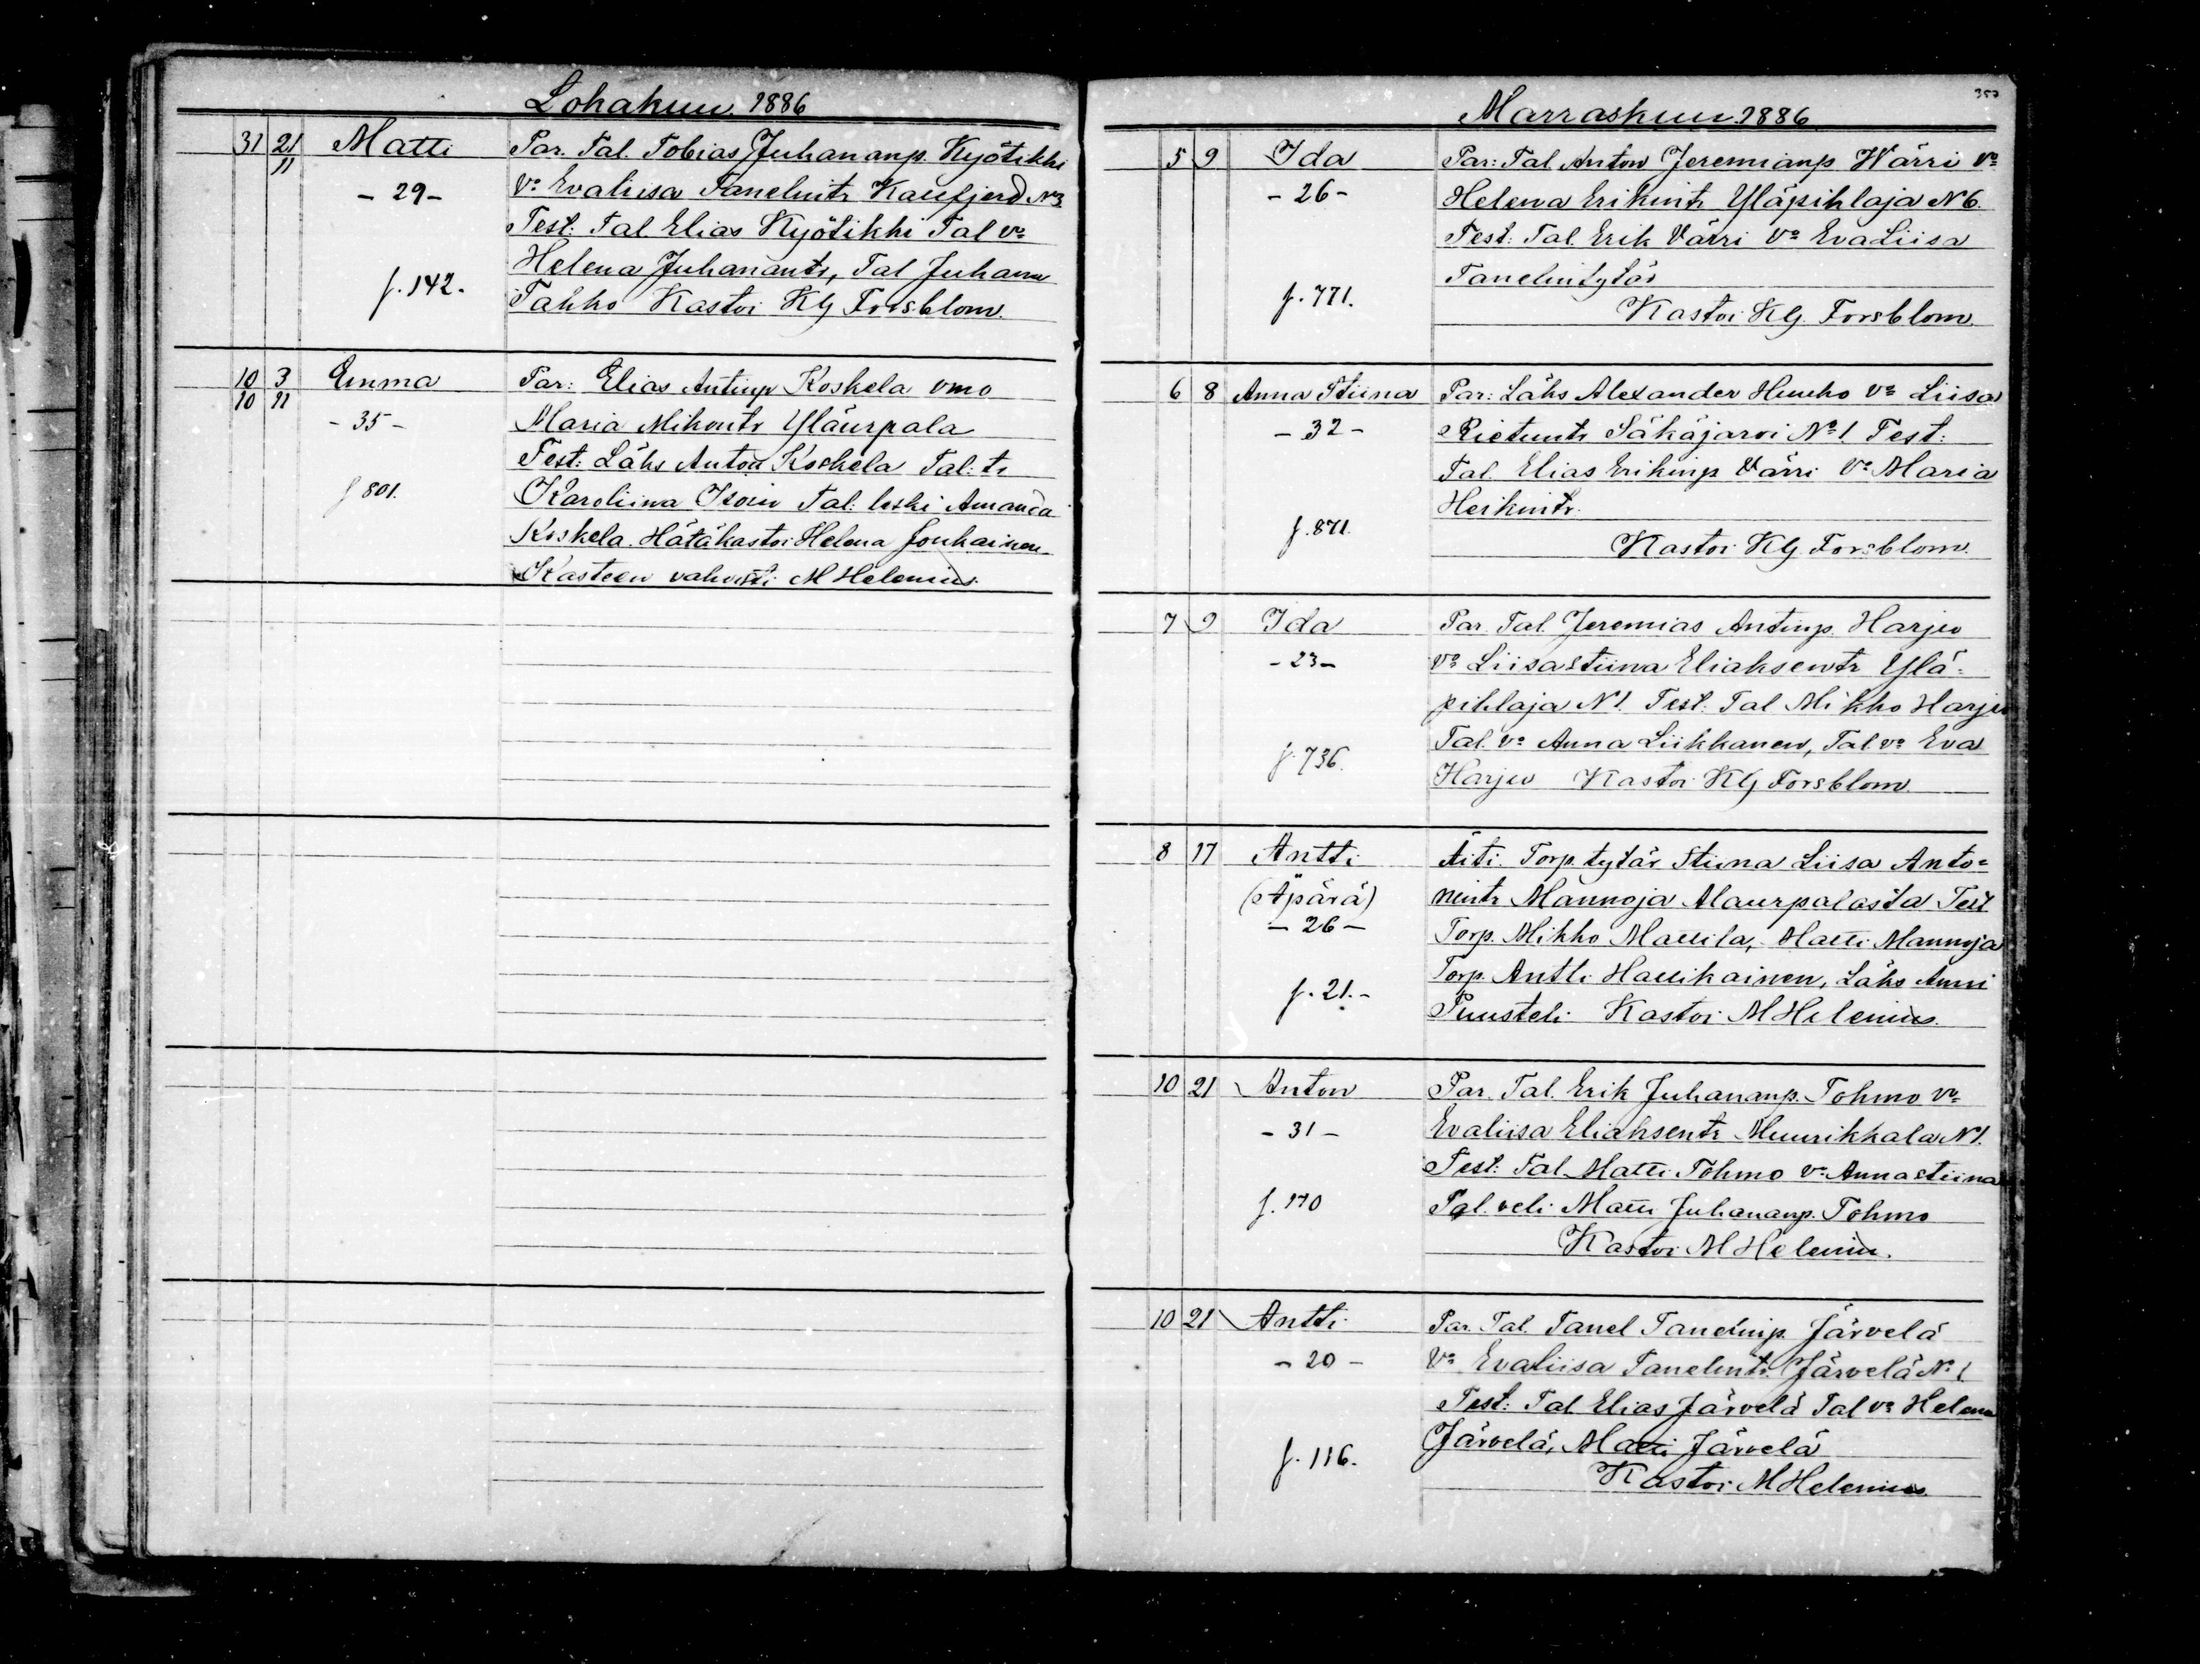 Lokakuu. 1886
31 21/11 Matti Par. Tal. Tobias Juhananp. Kyötikki
- 29 - Vo Evaliisa Tanelintr Kaufjerd No 3
Test: Tal. Elias Kyötikki Tal vo
Helena Juhanantr, Tal Juhana
f. 142. Tahko Kastoi KG Forsblom.
10/10 3/11 Emma Par: Elias Antinp Koskela vmo
- 35 - Maria Mikontr Yläurpala
Test: Läks Anton Koskela Tal: tr
f 801. Karoliina Tal: leski Amanda
Koskela. Hätäkastoi Helena Jouhainen
Kasteen vahvisti M Helenius.
357
Marraskuu 1886
5 9 Ida Par: Tal Anton Jeremianp Wärri vo
- 26 - Helena Erikintr Yläpihlaja N 6.
Test: Tal. Erik Värri Vo Eva Liisa
Tanelintytär
f. 771. Kastoi KG. Forsblom.
6 8 Anna Stiina Par: Läks Alexander Huuho vo Liisa
- 32 - Rietuntr Säkäjarvi No 1 Test:
Tal. Elias Erikinp Värri Vo Maria
Heikintr.
f. 871. Kastoi KG. Forsblom.
7 9 Ida Par. Tal. Jeremias Antinp. Harju
- 23 - Vo Liisastiina Eliaksentr Ylä-
pihlaja N 1. Test. Tal Mikko Harju
Tal. vo Anna Liikkanen, Tal. vo Eva
f. 736. Harju Kastoi KG Forsblom.
8 17 Antti Äiti Torp. tytär Stiina Liisa Anto=
(Äpärä) nintr Mannoja Alaurpalasta Test
- 26 - Torp. Mikko Mattila, Matti Mannoja
Torp. Antti Hallikainen, Läks Anni
f. 21. - Puusteli Kastoi M Helenius.
10 21 Anton Par. Tal. Erik Juhananp. Tohmo Vo
- 31 - Evaliisa Eliaksentr Muurikkala N 1.
Test: Tal. Matti Tohmo vo Annastiina
f. 170 Tal. veli Matti Juhananp. Tohmo
Kastoi M Helenius.
10 21 Antti Par. Tal. Tanel Tanelinp. Järvelä
- 20 - Vo Evaliisa Tanelintr. Järvelä No 1.
Test: Tal Elias Järvelä Tal vo Helena
f. 116. Järvelä, Matti Järvelä
Kastoi M Helenius